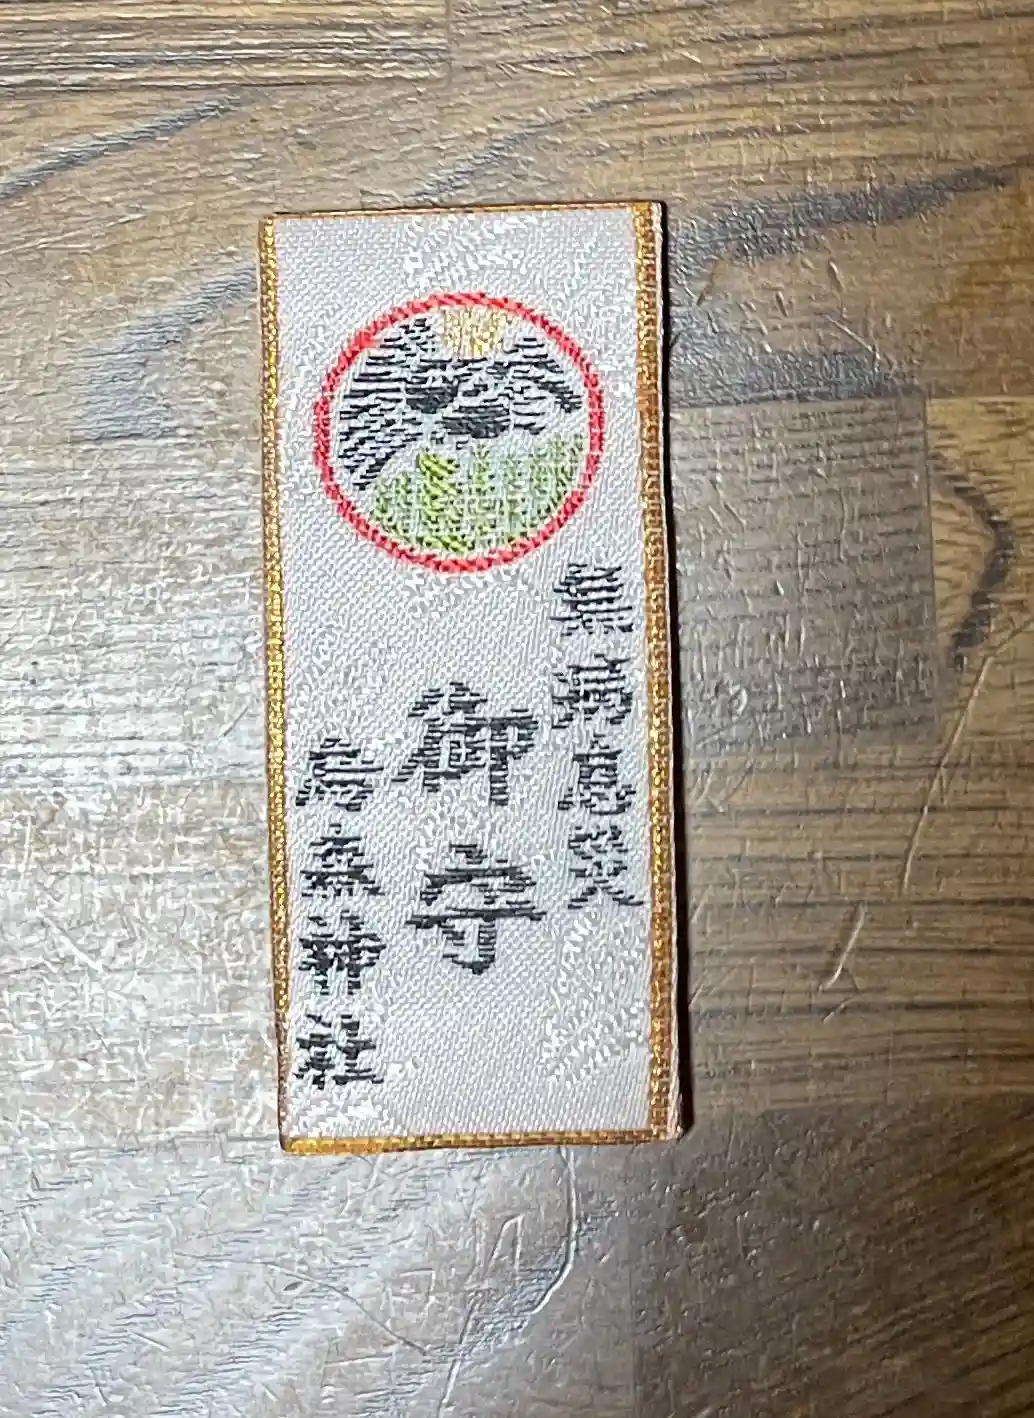 無病息災
御守
森神社